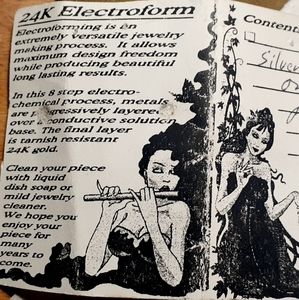 24K Electroform
Electroforming is an
extremely versatile jewelry
making process. It allows
maximum design freedom
while producing beautiful
long lasting results.
In this 8 step electro-
chemical process, metals
are progressively layered
over a conductive solution
base. The final layer
is tarnish resistant
24K gold.
Clean your piece
with liquid
dish soap or
mild jewelry
cleaner.
We hope you
enjoy your
piece for
many
years to
come.
Content
Silver